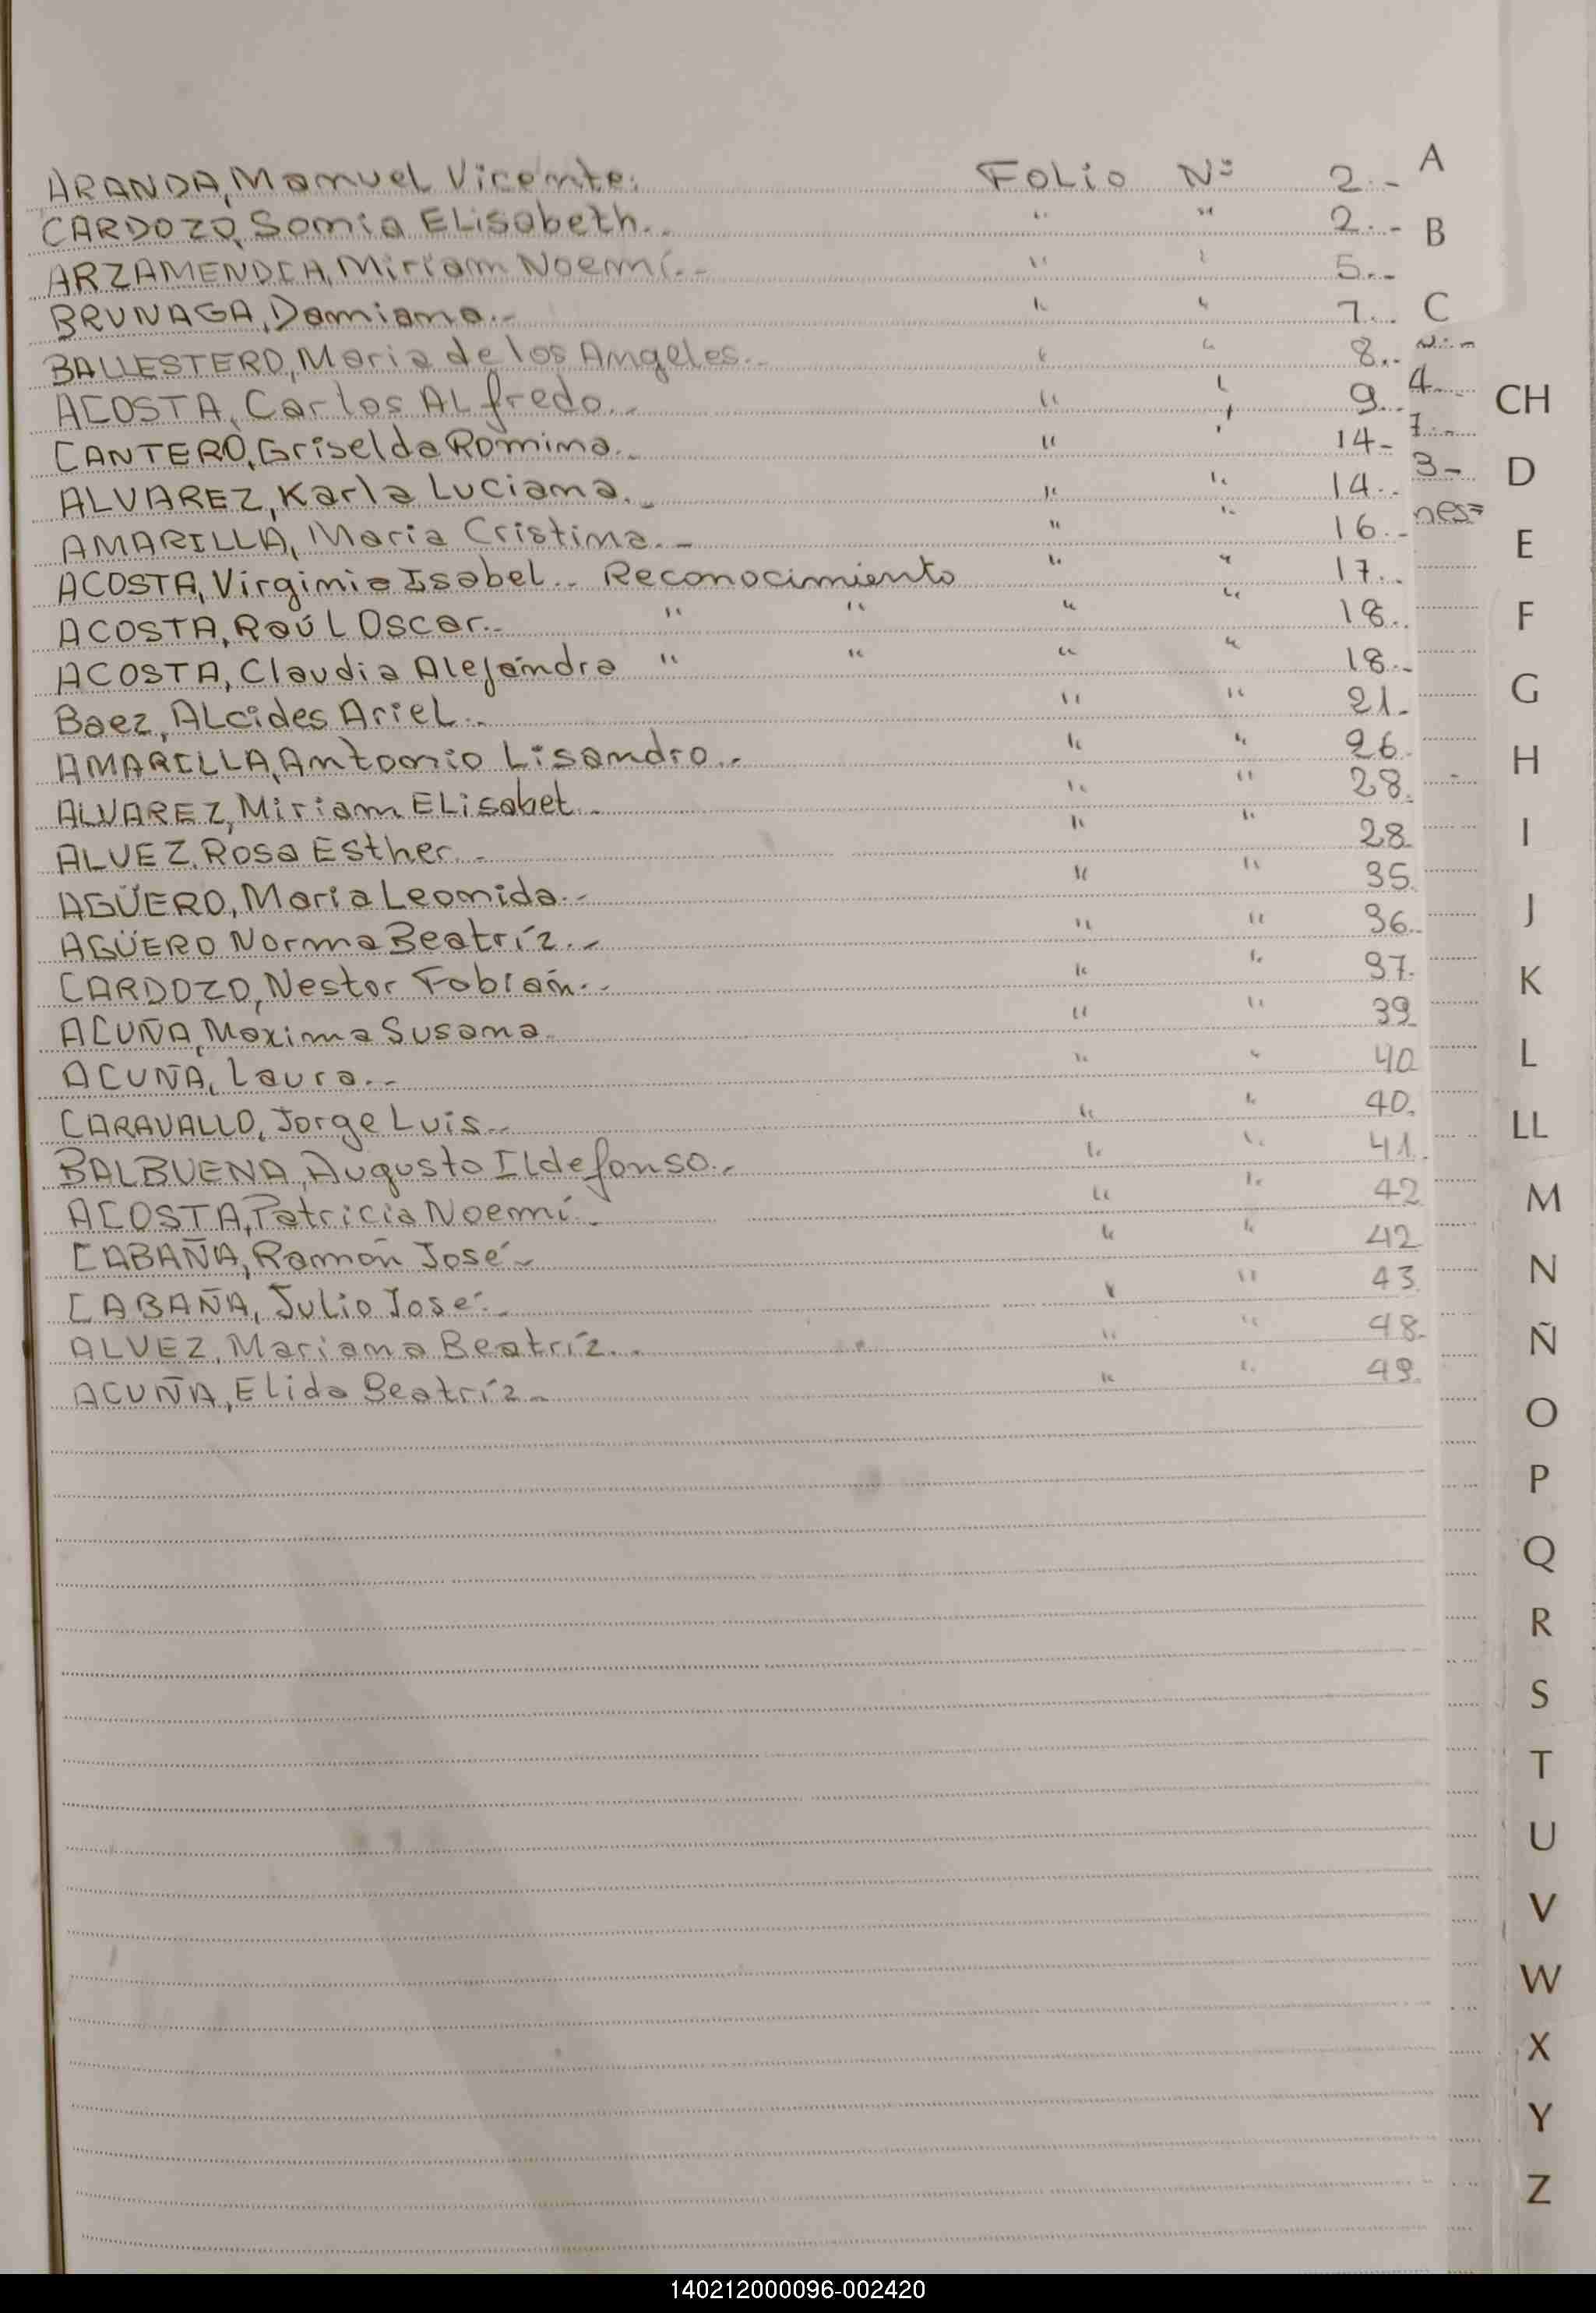 ARANDA, Manuel Vicente. Folio Nº 2.-
CARDOZO, Sonia Elisabeth.. " " 2.-
ARZAMENDIA, Miriam Noemí.- " " 5.-
BRUNAGA, Damiana.- " " 7..
BALLESTERO, Maria de los Angeles.- " " 8..
ACOSTA, Carlos Alfredo.- " " 9..
CANTERO, Griselda Romina.- " " 14-
ALVAREZ, Karla Luciana.- " " 14..
AMARILLA, Maria Cristina.- " " 16.-
ACOSTA, Virginia Isabel.. Reconocimiento " " 17..
ACOSTA, Raúl Oscar.- " " " " 18..
ACOSTA, Claudia Alejandra " " " " 18.-
Baez, Alcides Ariel.- " " 21.
AMARILLA, Antonio Lisandro.- " " 26.
ALVAREZ, Miriam Elisabet.- " " 28.
ALVEZ, Rosa Esther.- " " 28
AGÜERO, Maria Leonida.- " " 35.
AGÜERO Norma Beatríz.- " " 36.
CARDOZO, Nestor Fabián.- " " 37.
ACUÑA, Maxima Susana. " " 39
ACUÑA, Laura.- " " 40
CARAVALLO, Jorge Luis.- " " 40.
BALBUENA, Augusto Ildefonso.- " " 41.
ACOSTA, Patricia Noemí.- " " 42
CABAÑA, Ramón José.- " " 42
CABAÑA, Julio José.- " " 43.
ALVEZ, Mariana Beatríz.- " " 48.
ACUÑA, Elida Beatríz.- " " 49.
4.
7.-
3-
nes=
A
B
C
CH
D
E
F
G
H
I
J
K
L
LL
M
N
Ñ
O
P
Q
R
S
T
U
V
W
X
Y
Z
140212000096-002420